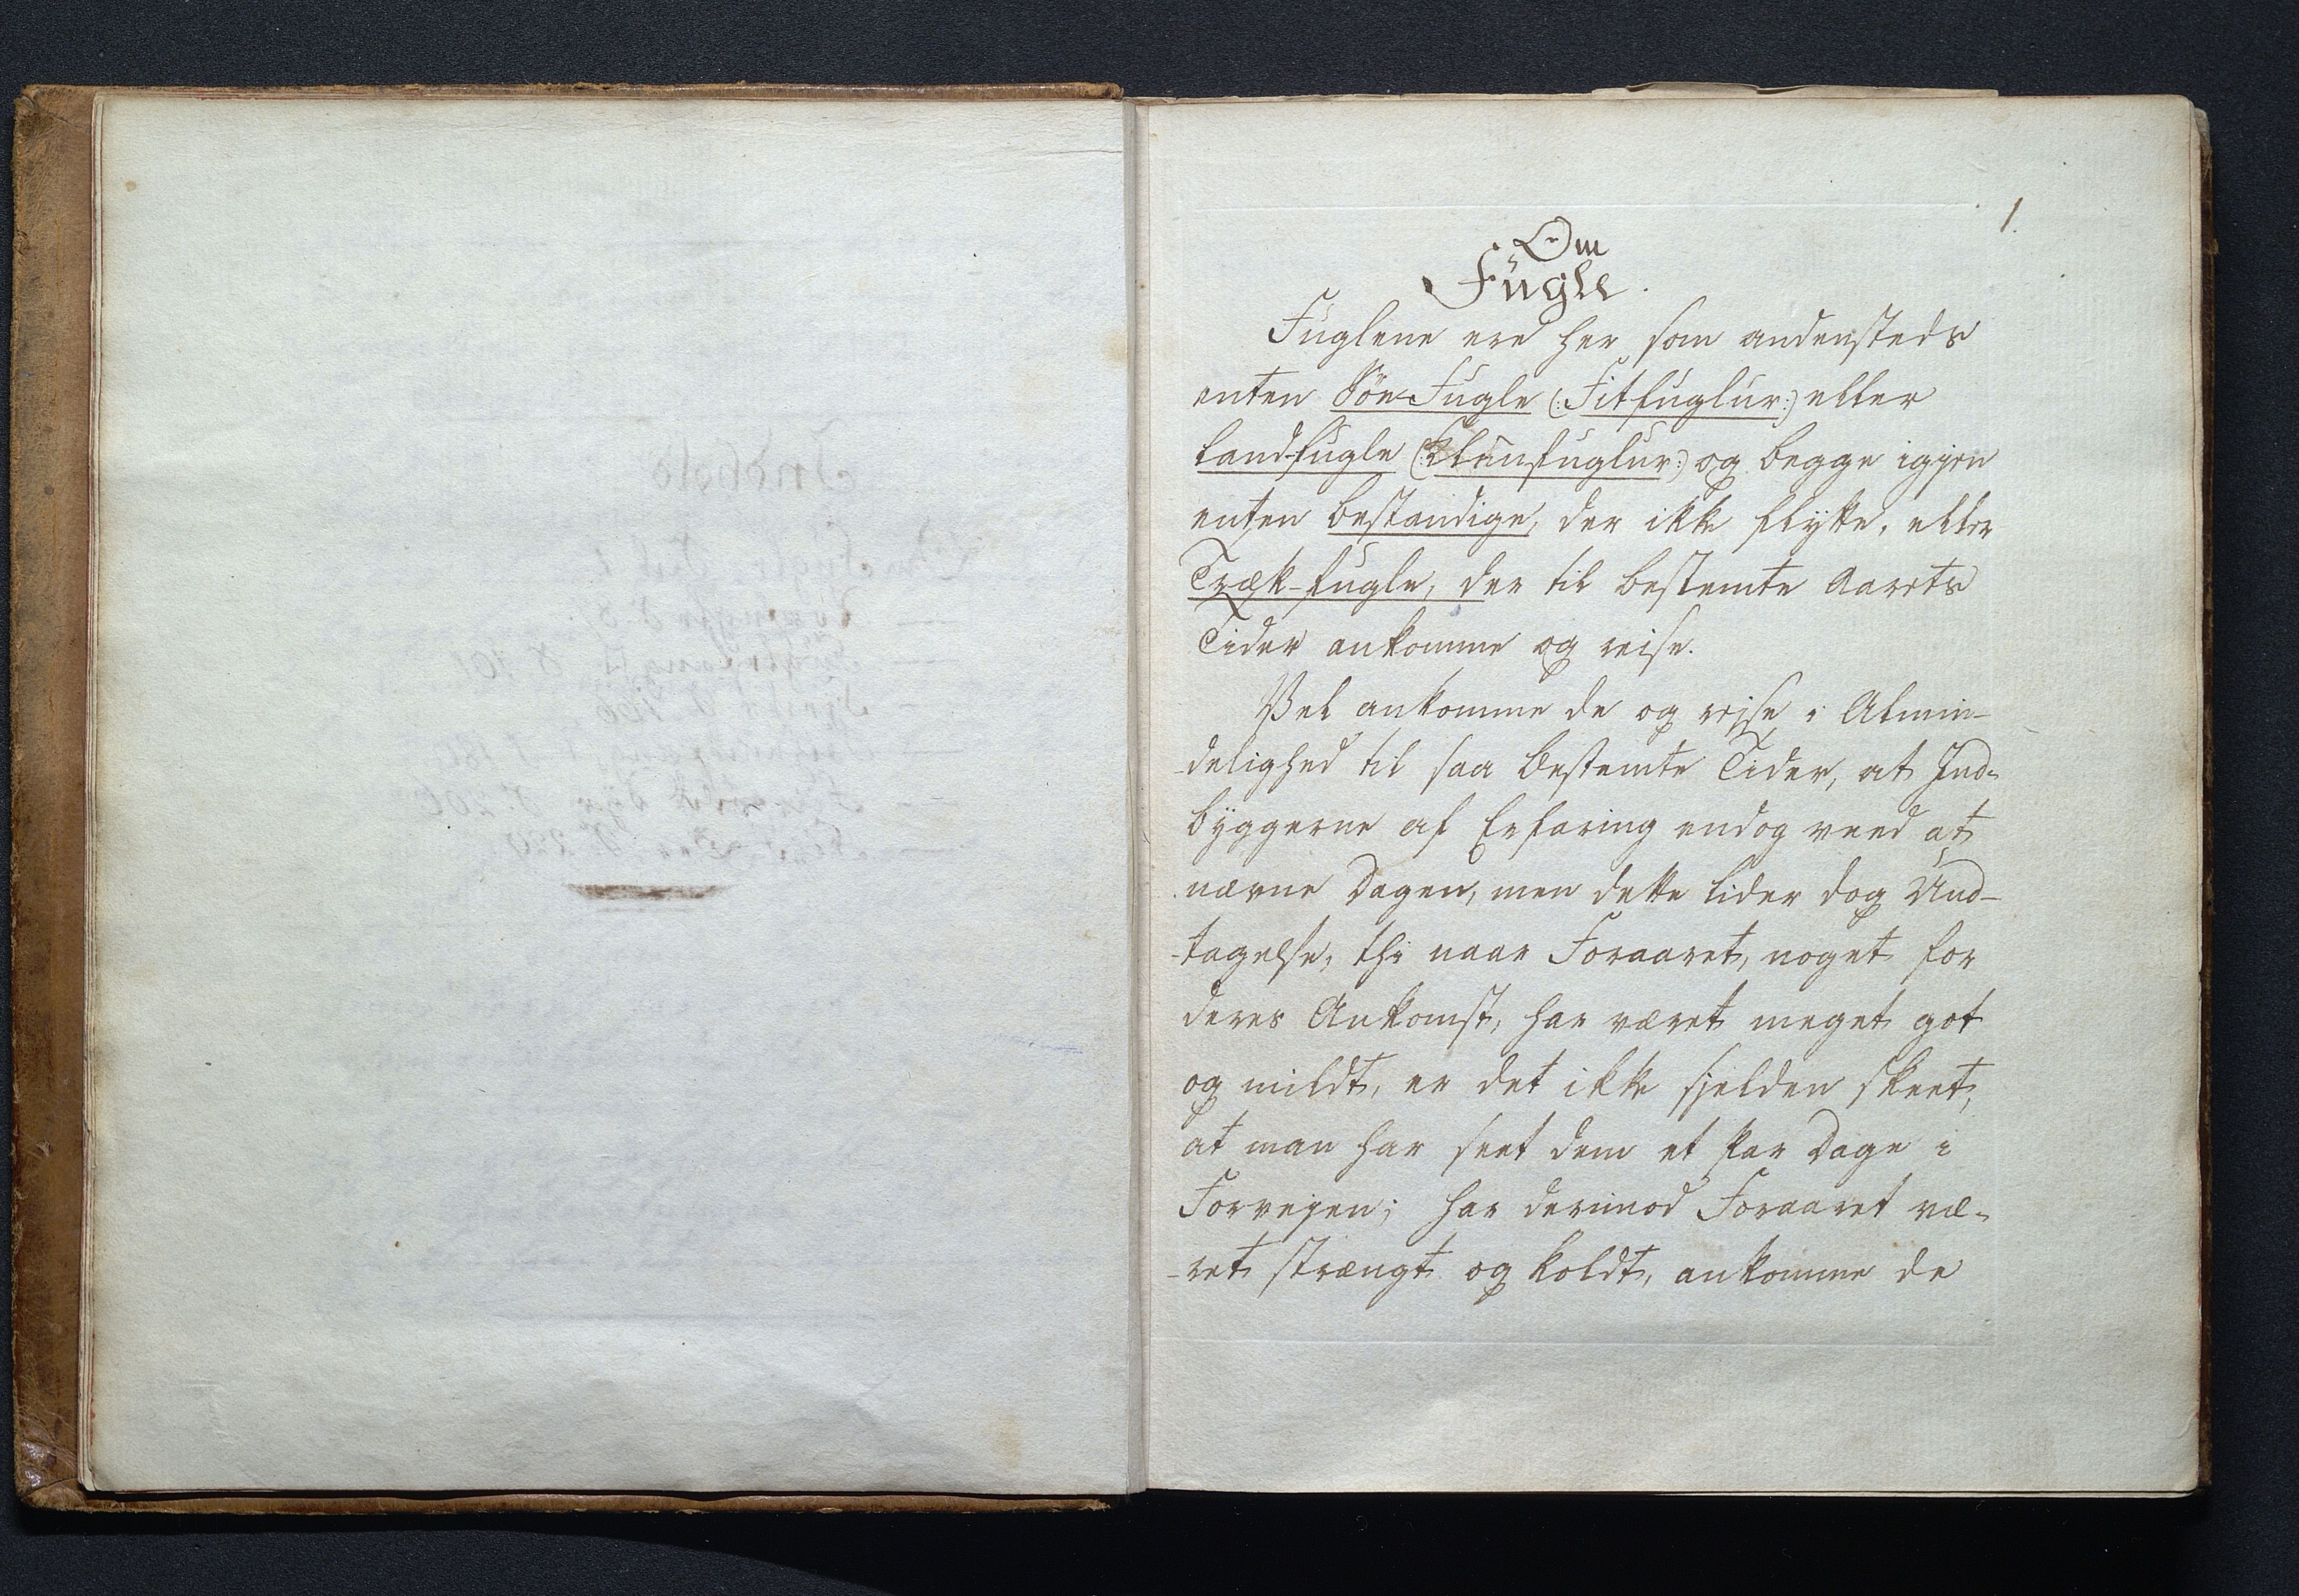 1.
Om
Fugle.
Fuglene ere her som andensteds
enten Söe-Fugle (: Fitfuglur :) eller
Landfugle (: Klunfuglur :) og begge igjen
enten bestandige, der ikke flytte, eller
Træk-fugle, der til bestemte Aarets
Tider ankomme og reise.
Vel ankomme de og rejse i Almin-
-delighed til saa bestemte Tider, at Ind-
byggerne af Erfaring endog veed at
nævne Dagen, men dette lider dog Und-
-tagelse, thi naar Foraaret, noget for
deres Ankomst, har været meget got
og mildt, er det ikke sjelden skeet,
at man har seet dem et Par Dage i
Forvejen; har derimod Foraaret væ-
-ret strængt og koldt, ankomme de